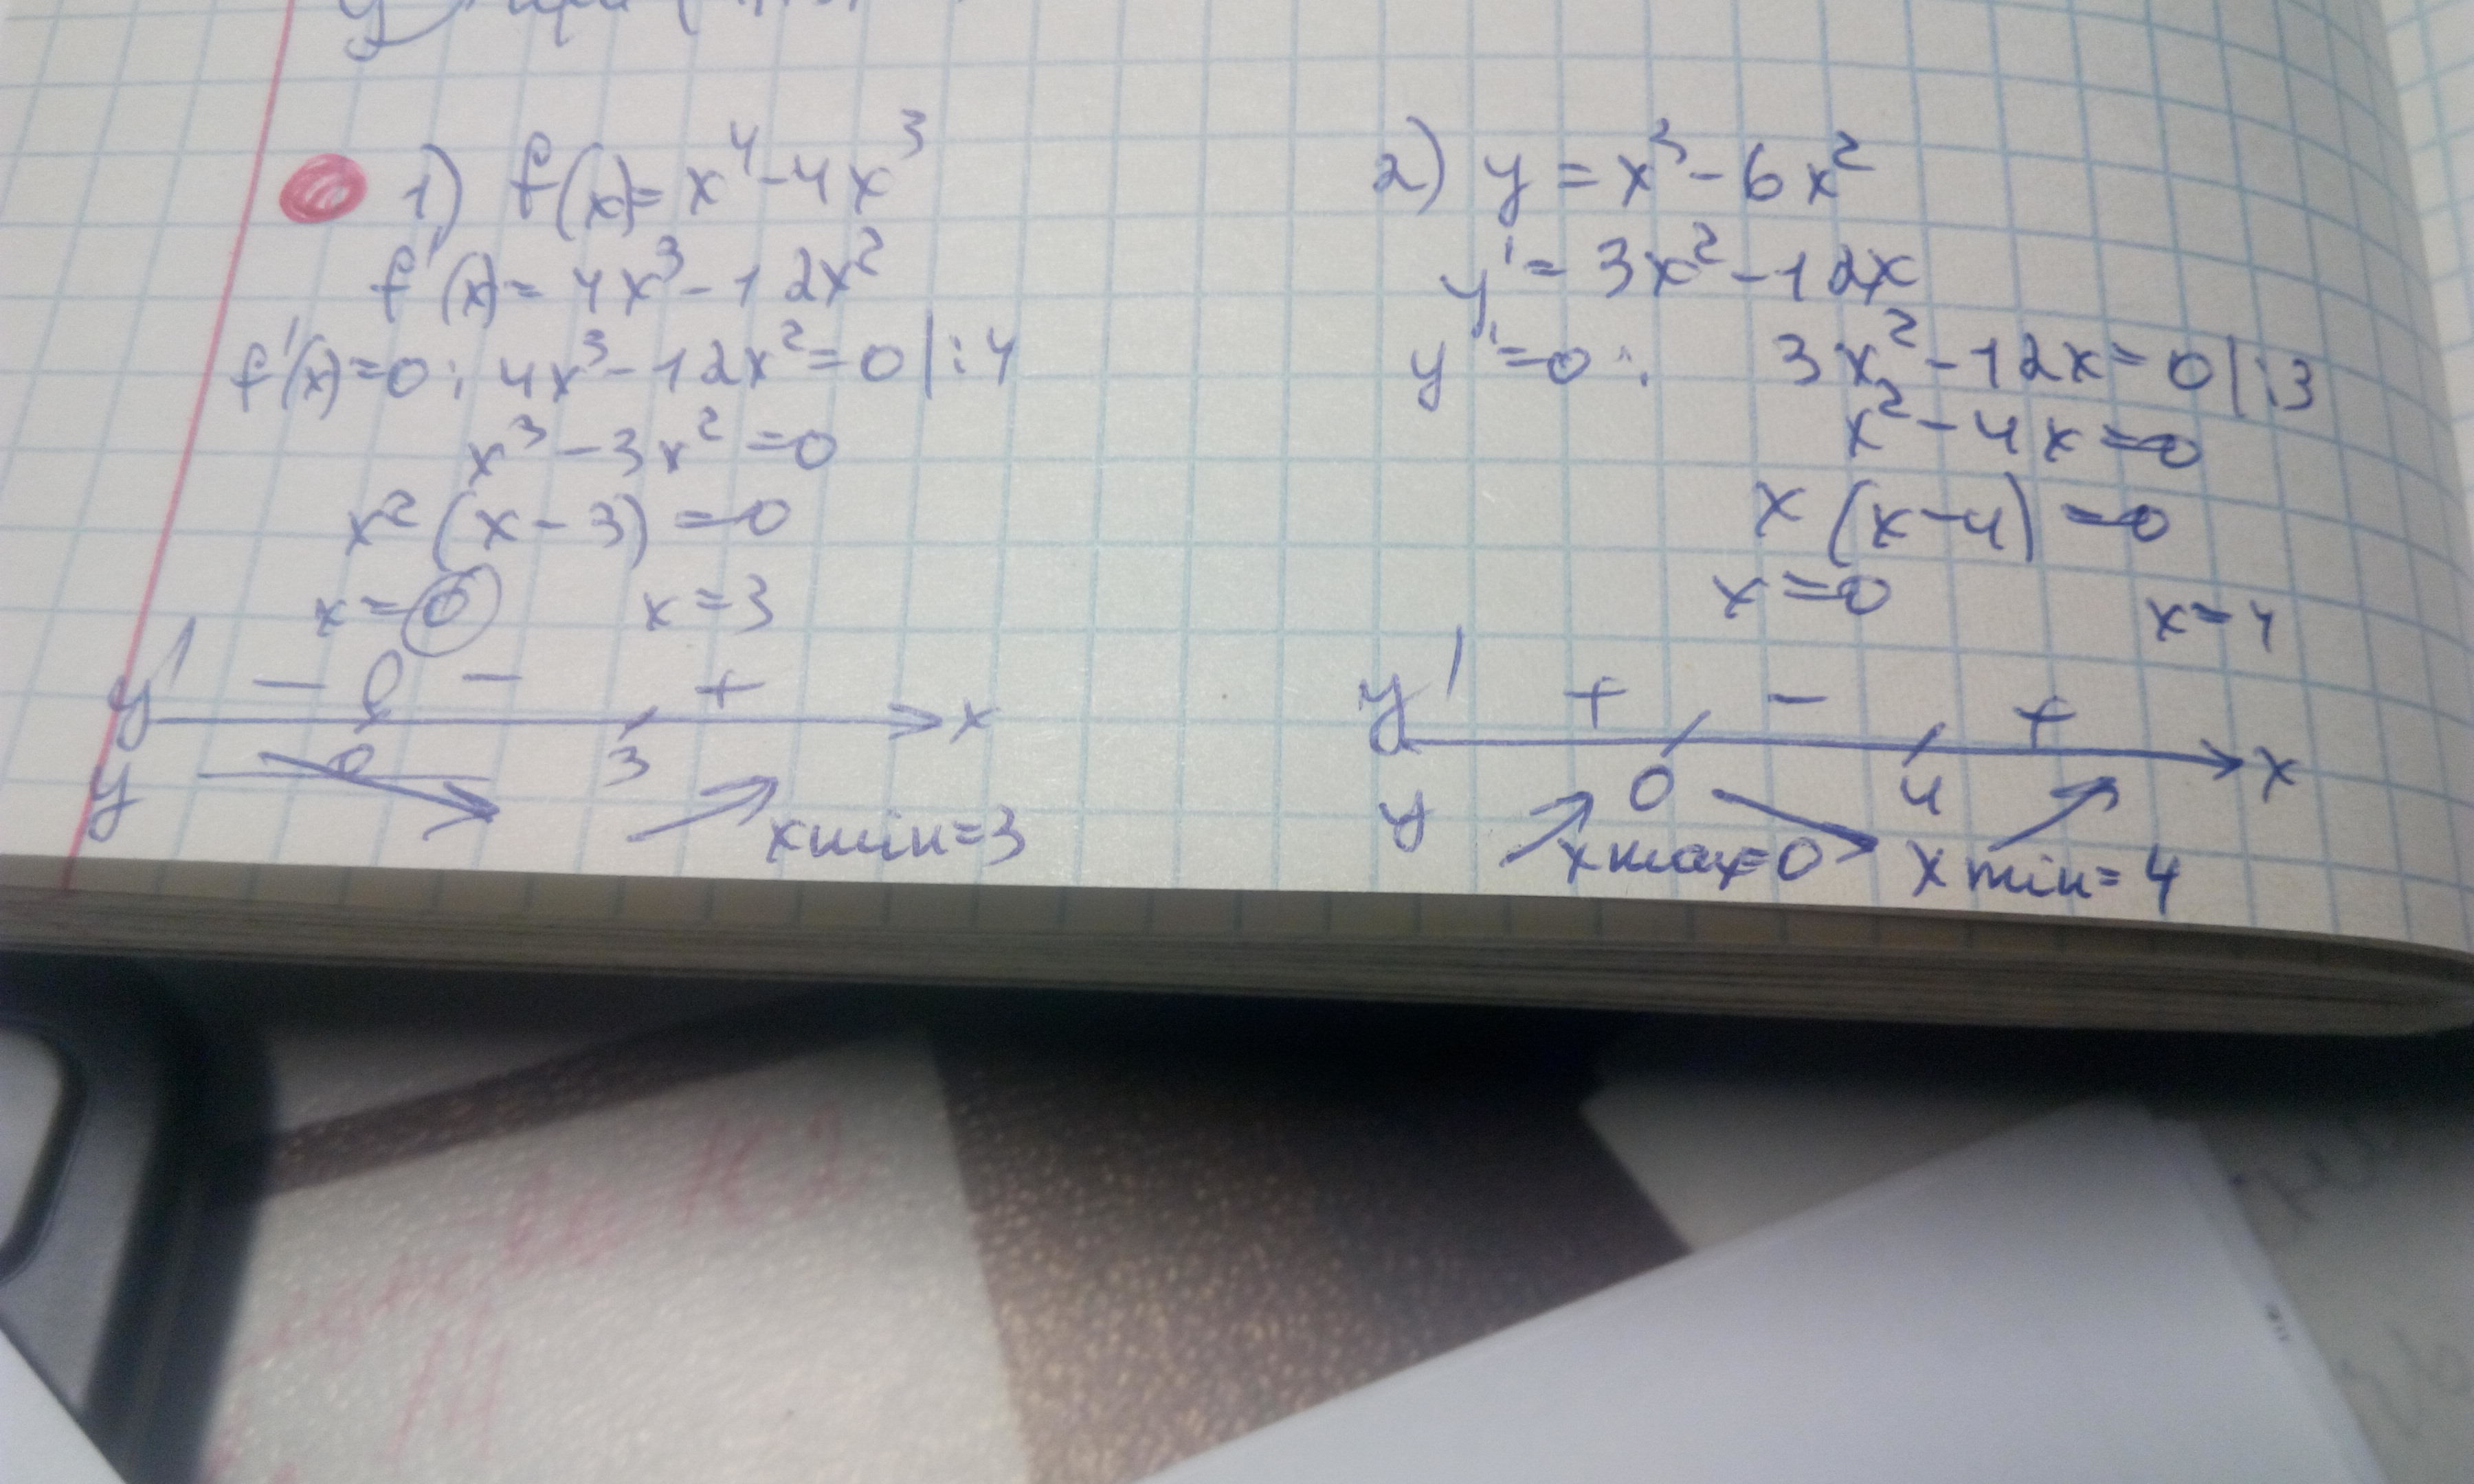 1) f(x)=x⁴-4x³
f'(x)=4x³-12x²
f'(x)=0: 4x³-12x²=0|:4
x³-3x²=0
x²(x-3)=0
x=0 x=3
y' - - + x
0 3
y xmin=3
2) y=x³-6x²
y'=3x²-12x
y'=0: 3x²-12x=0|:3
x²-4x=0
x(x-4)=0
x=0 x=4
y' + - + x
0 4
y xmax=0 xmin=4